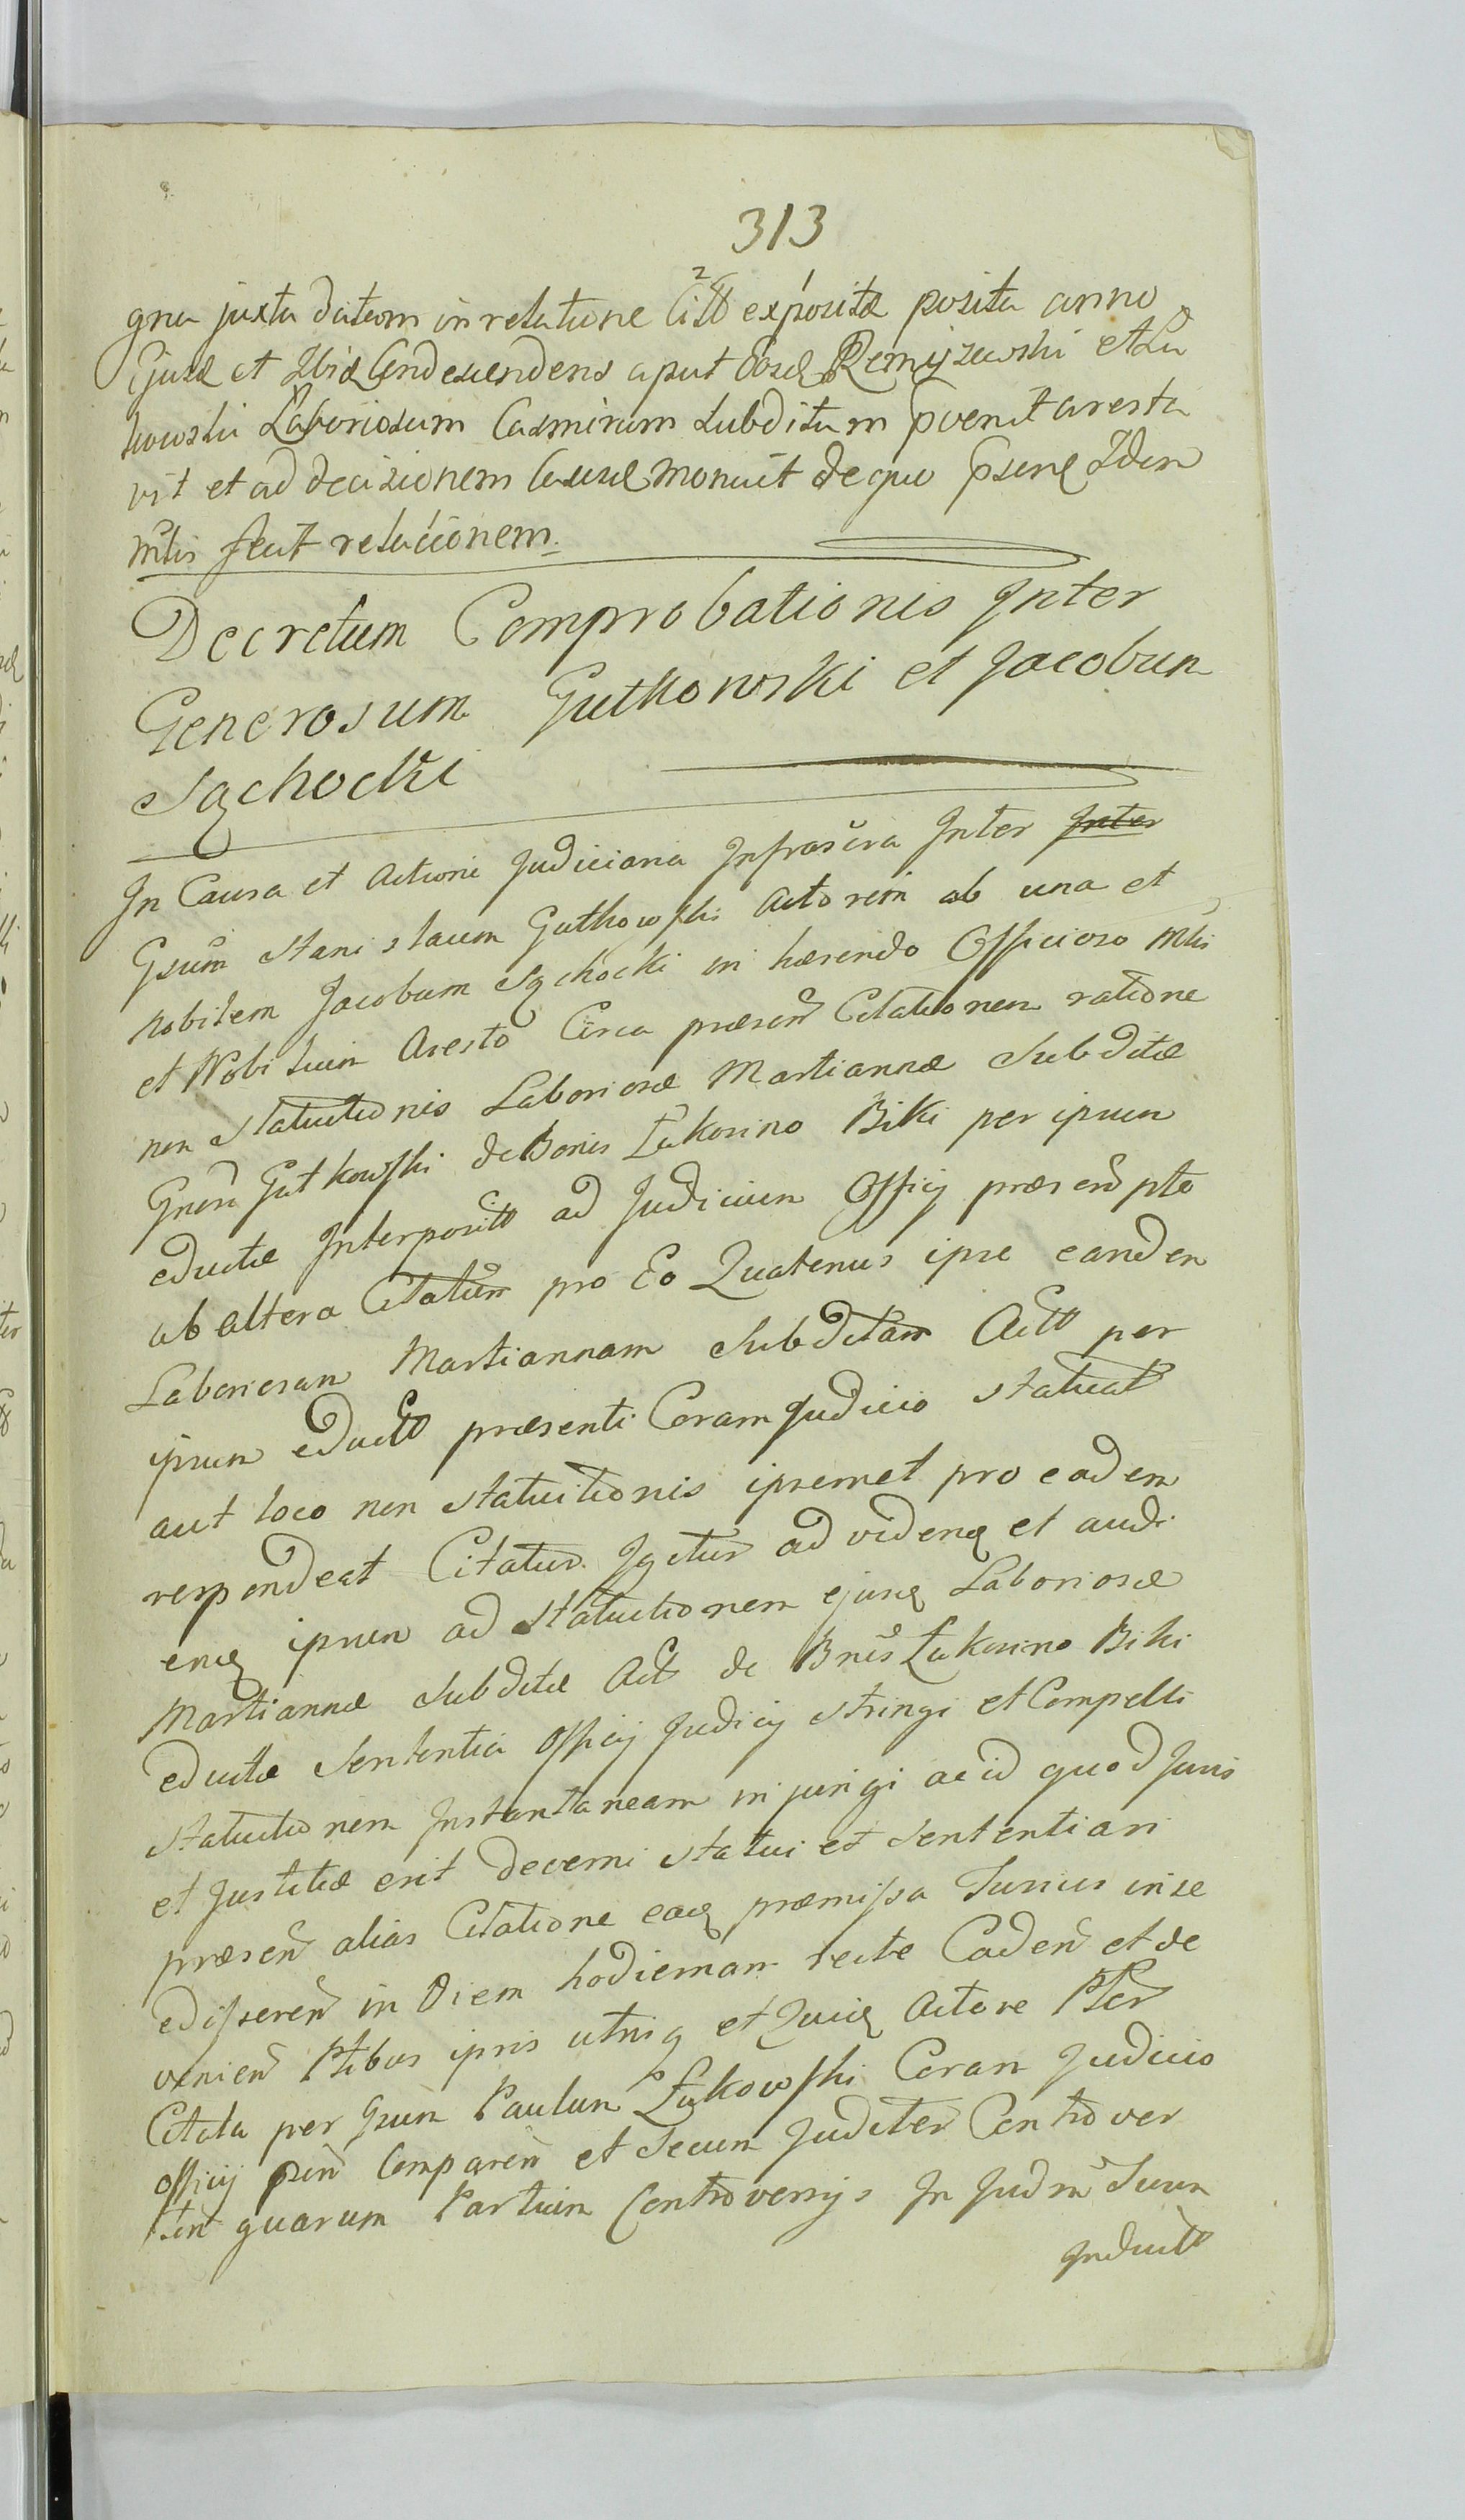 313
gna juxta datam in relatione Citt exposita posita anno
Ejusd et Ibid Condescendens aput Eosd Remiszewski et Lu
kowski Laboriosum Casmirum subditum pvenit aresta
vit et ad decisionem Causae monuit de quo psenq Idem
mlis fecit relacionem.
Decretum Comprobationis Inter
Generosum Gutkowski et Jacobum
Sąchocki
In Causa et Actione Judiciaria Infrascra Inter Inter
Gsum Stanislaum Gutkowski Actorem ab una et
nobilem Jacobum Sąchocki in haerendo Officioso Mlis
et Nobilium Aresto Circa praesen Citationem ratione
non Statuitionis Laboriosae Martiannae Subditae
Gnosi Gutkowski de Bonis Łukosino Biki per ipsum
eductae Interposito ad Judicium Officij praesen pto
ab altera Citatum pro Eo Quatenus ipse eandem
Laboriosam Martiannam Subditam Act per
ipsum educt praesenti Coram Judicio Statuat
aut loco non Statuitionis ipsemet pro eadem
respondeat Citatus. Igitur ad videnq et audi
enq ipsum ad Statuitionem ejusq Laboriosae
Martiannae Subditae Act de Bnis Łukosino Biki
eductae Sententia Officij Judicij Stringi et Compelli
Statuitionem Instantaneam injungi ac id quod Juris
et Justitiae erit decerni Statui et Sententiari
praesen alias Citatione eaq praemissa Surius in se
edisseren in Diem hodiernam recte Caden et de
venien Ptibus ipsis utrisq et Quid Actore Pter
Citata per Gsum Paulum Łukowski Coram Judicio
Officij psen Comparen et Secum Juditer Controver
ten quarum Partium Controversijs In Judm Suum
Induct